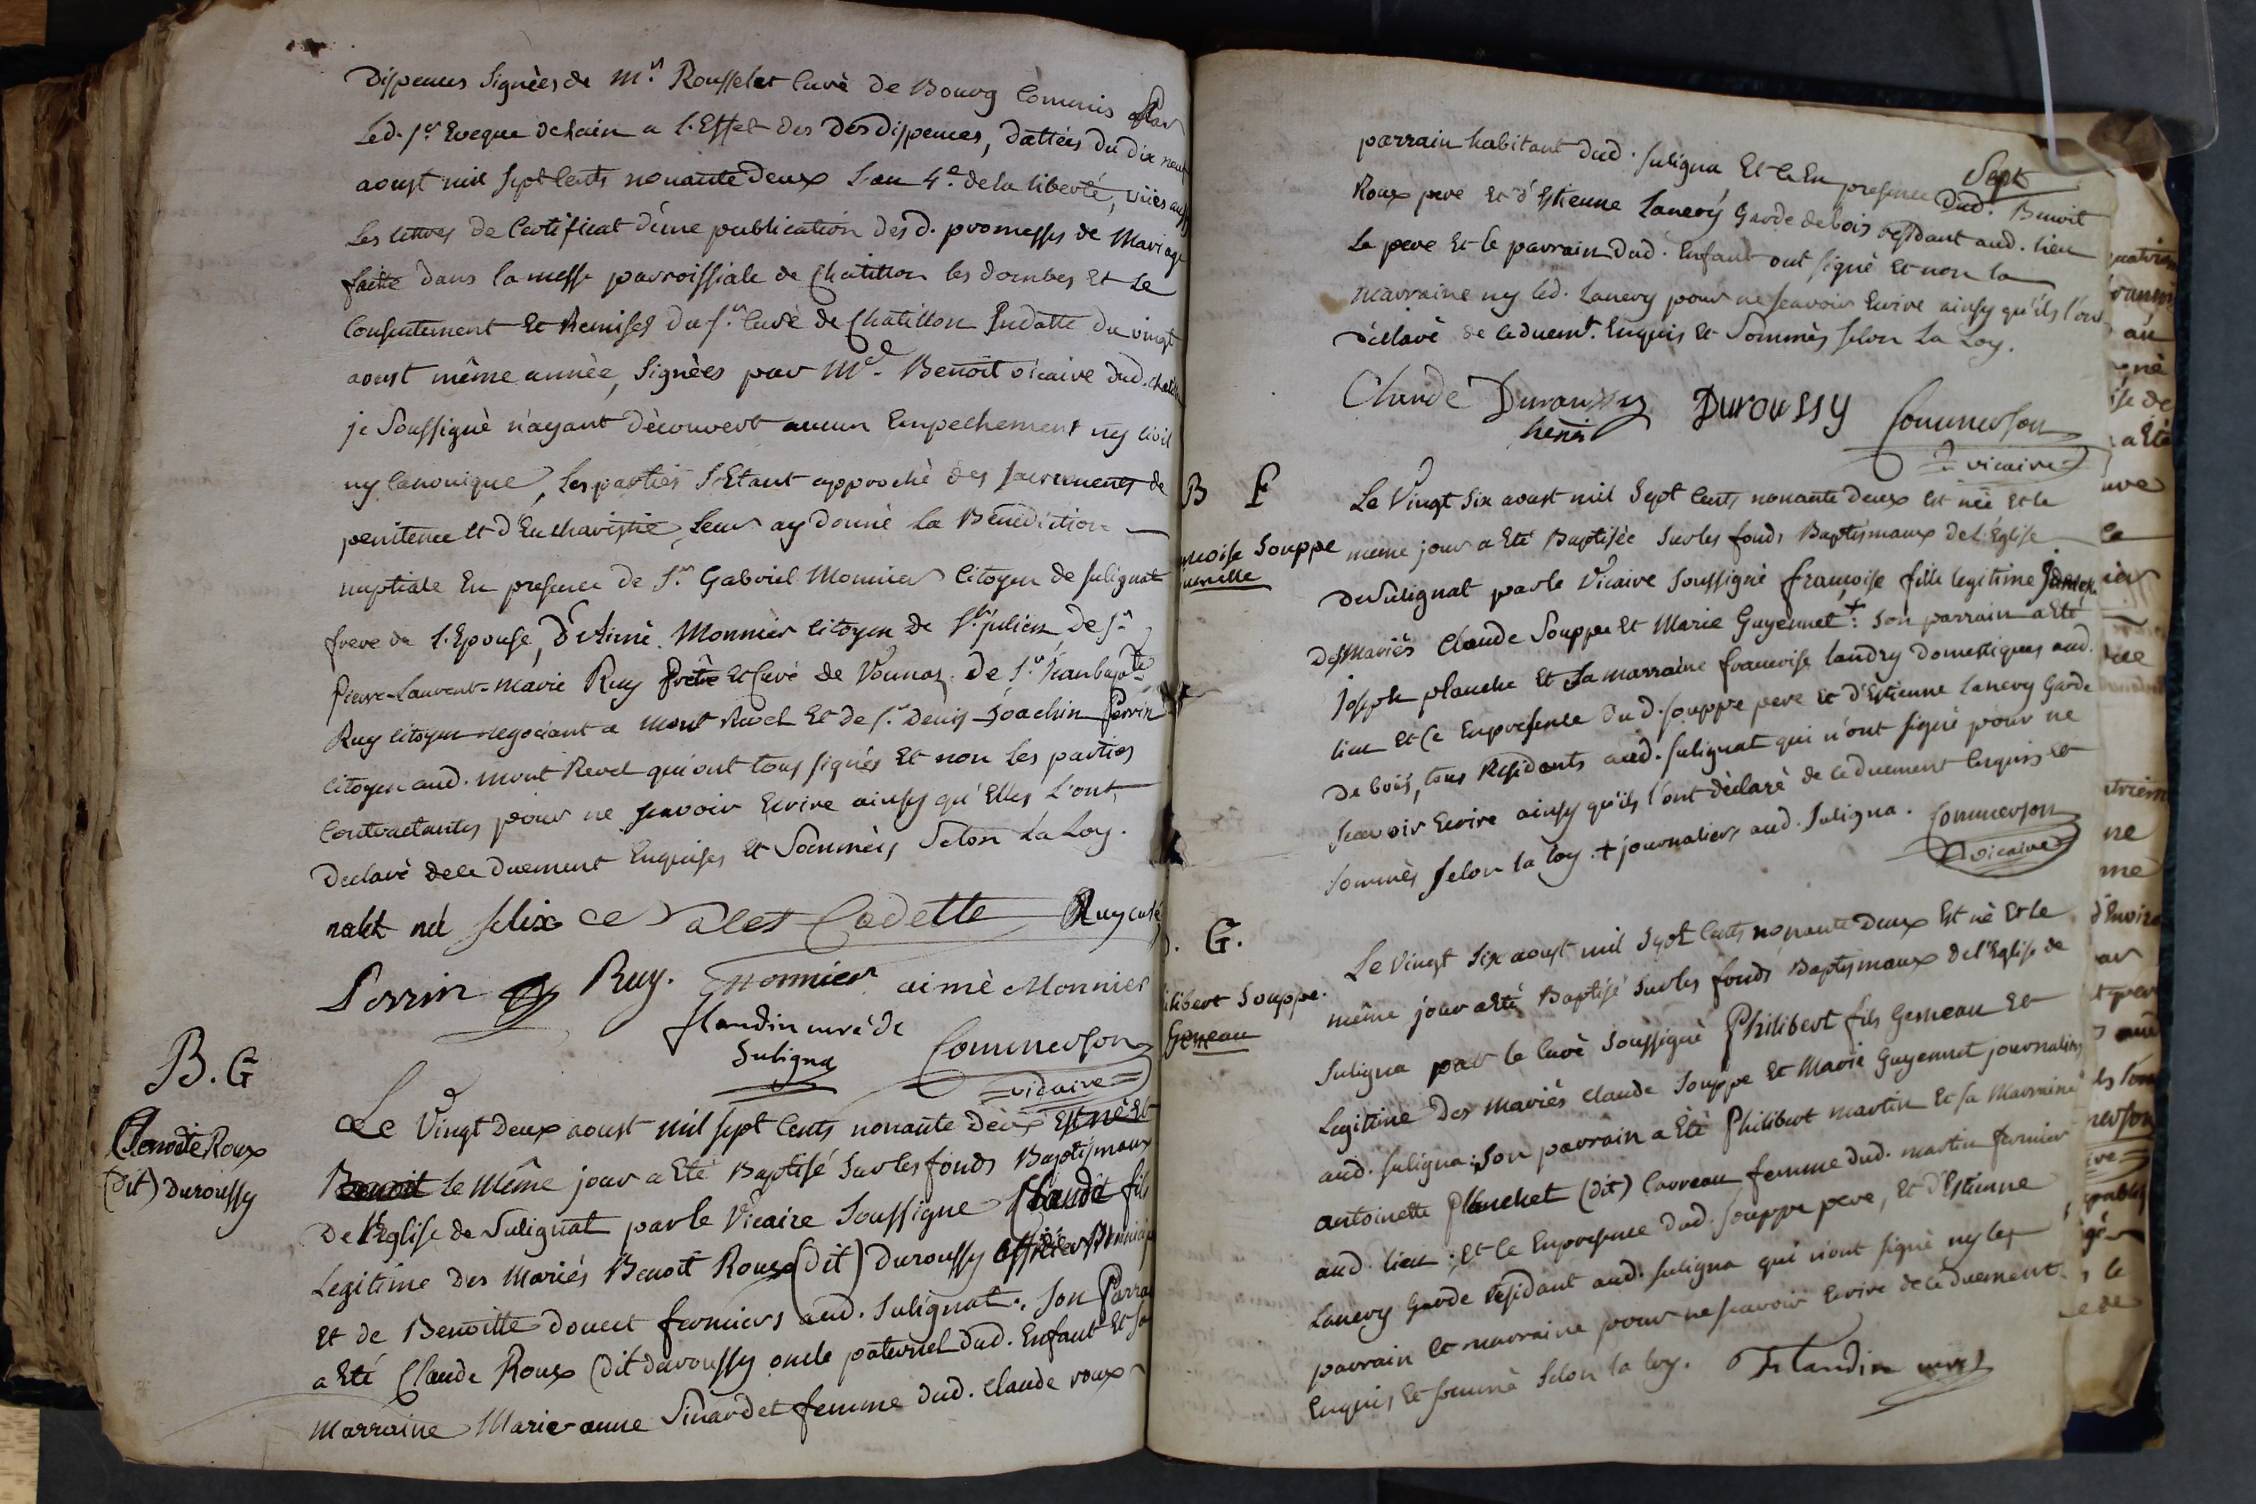 Dispences Signées de Mr. Rousselet Curé de Bourg Commis par
Led. Sr. Eveque de Lain a l'Effet des Desdispences, Dattées du dix neuf
aoust mil Sept Cents nonante deux L'an 4e. de la liberté, vües aussy
Les lettres de Certificat d'une publication desd. promesses de Mariage
faitte dans la messe parroissiale de Chatillon les dombes Et Le
Consentement Et Remises du Sr. Curé de Chatillon Endatte du vingt
aoust même année, Signées par Mre. Benoit vicaire dud. Chatillon
je Soussigné n'ayant Découvert aucun Empechement ny Civil
ny Canonique, Les parties S'Etant approché des Sacrements de
penitence Et d'Eucharistie, Leur ay donné La Bénédiction
nuptiale En presence de Sr. Gabriel Monnier Citoyen de Sulignat
frere de l'Epouse, D'Aimé Monnier Citoyen de St. julien, de Sr.
Pierre-Laurent-Marie Ruy Prêtre Et Curé de Vonnas, de Sr. Jeanbapte.
Ruy Citoyen negociant a Mont Revel Et de Sr. Denis Joachin Perrin
Citoyen aud. Mont Revel qui ont tous signés Et non Les parties
Contractantes pour ne scavoir Ecrire ainsy qu'Elles L'ont
Declaré de ce Duement Enquises Et Sommées Selon La Loy.
felix ce Valet Cadette Ruy curé
Perrin Ruy. Monnier aimé Monnier
flandin curé de
Suligna
Commerson
vicaire
B. G
Claude Roux
(dit) Duroussy
Le Vingt Deux aoust mil sept Cents nonante Deux Est né Et
Benoit le Même jour a Eté Baptisé Sur les fonds Baptismaux
De l'Eglise de Sulignat par le Vicaire Soussigné Claude fils
Legitime Des Mariés Benoit Roux (Dit) Duroussy officier Municipal
Et de Benoitte Douert fermiers aud. Sulignat. Son Parrain
a Eté Claude Roux (Dit duroussy oncle paternel Dud. Enfant Et Sa
Marraine Marie-anne Sinardet femme dud. Claude roux
Sept
parrain habitant Dud. Suligna Et Ce En presence Dud. Benoit
Roux pere Et d'Estienne Lanery Garde de bois residant aud. lieu
Le pere Et le parrain Dud. Enfant ont signé Et non la
Marraine ny led. Lanery pour ne scavoir Ecrire ainsy qu'ils l'ont
Déclaré de ce duemt. Enquis Et Sommés Selon La Loy.
Claude Duroussy Duroussy Commerson
vicaire
B F
ncoise Souppe
jumelle
Le Vingt Six aoust mil Sept Cents nonante deux Est née Et le
meme jour a Eté Baptisée Sur les fonds Baptismaux de l'Eglise
De Sulignat par le Vicaire Soussigné françoise fille legitime Jumelle
Des Mariés Claude Souppe Et Marie Guyennet +: Son parrain a Eté
Joseph planche Et Sa marraine francoise Landry Domestiques aud.
lieu Et Ce En presence Dud. Souppe pere Et d'Estienne Lanery Garde
De bois, tous Residents aud. Sulignat qui n'ont signé pour ne
Scavoir Ecrire ainsy qu'ils l'ont déclaré de ce duement Enquis Et
Sommés Selon la loy. + journaliers aud. Suligna. Commerson
vicaire
. G.
ilibert Souppe.
Gemeau
Le Vingt Six aoust mil Sept Cents nonante Deux Est né Et le
même jour a Eté Baptisé Sur les fonds Baptismaux de l'Eglise de
Suligna par le Curé Soussigné Philibert fils Gemeau Et
Legitime Des Mariés Claude Souppe Et Marie Guyennet journaliers
aud. Suligna: Son parrain a Eté Philibert Martin Et Sa Marraine
antoinette Planchet (dit) Correau femme Dud. Martin fermier
aud. lieu; Et Ce En presence Dud. Souppe pere, Et d'Estienne
Lanery Garde residant aud. Suligna qui n'ont signé ny les
parrain Et marraine pour ne scavoir Ecrire de ce duement
Enquis Et Sommé Selon la loy. Flandin curé